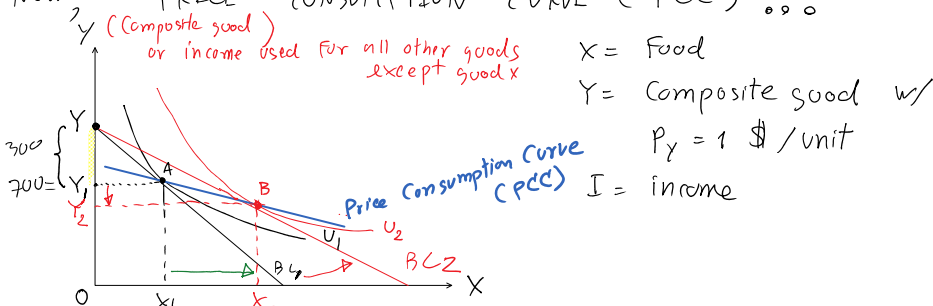 PRICE CONSUMPTION CURVE (PCC) ...
Y (Composite good)
or income used For all other goods
except good x
X = Food
Y = Composite good w/
Py = 1 $ /unit
I = income
Y
300
A
700 = Y1
Y2
B
Price Consumption Curve
(PCC)
U2
U1
BL1
BL2
X
O
X1
X